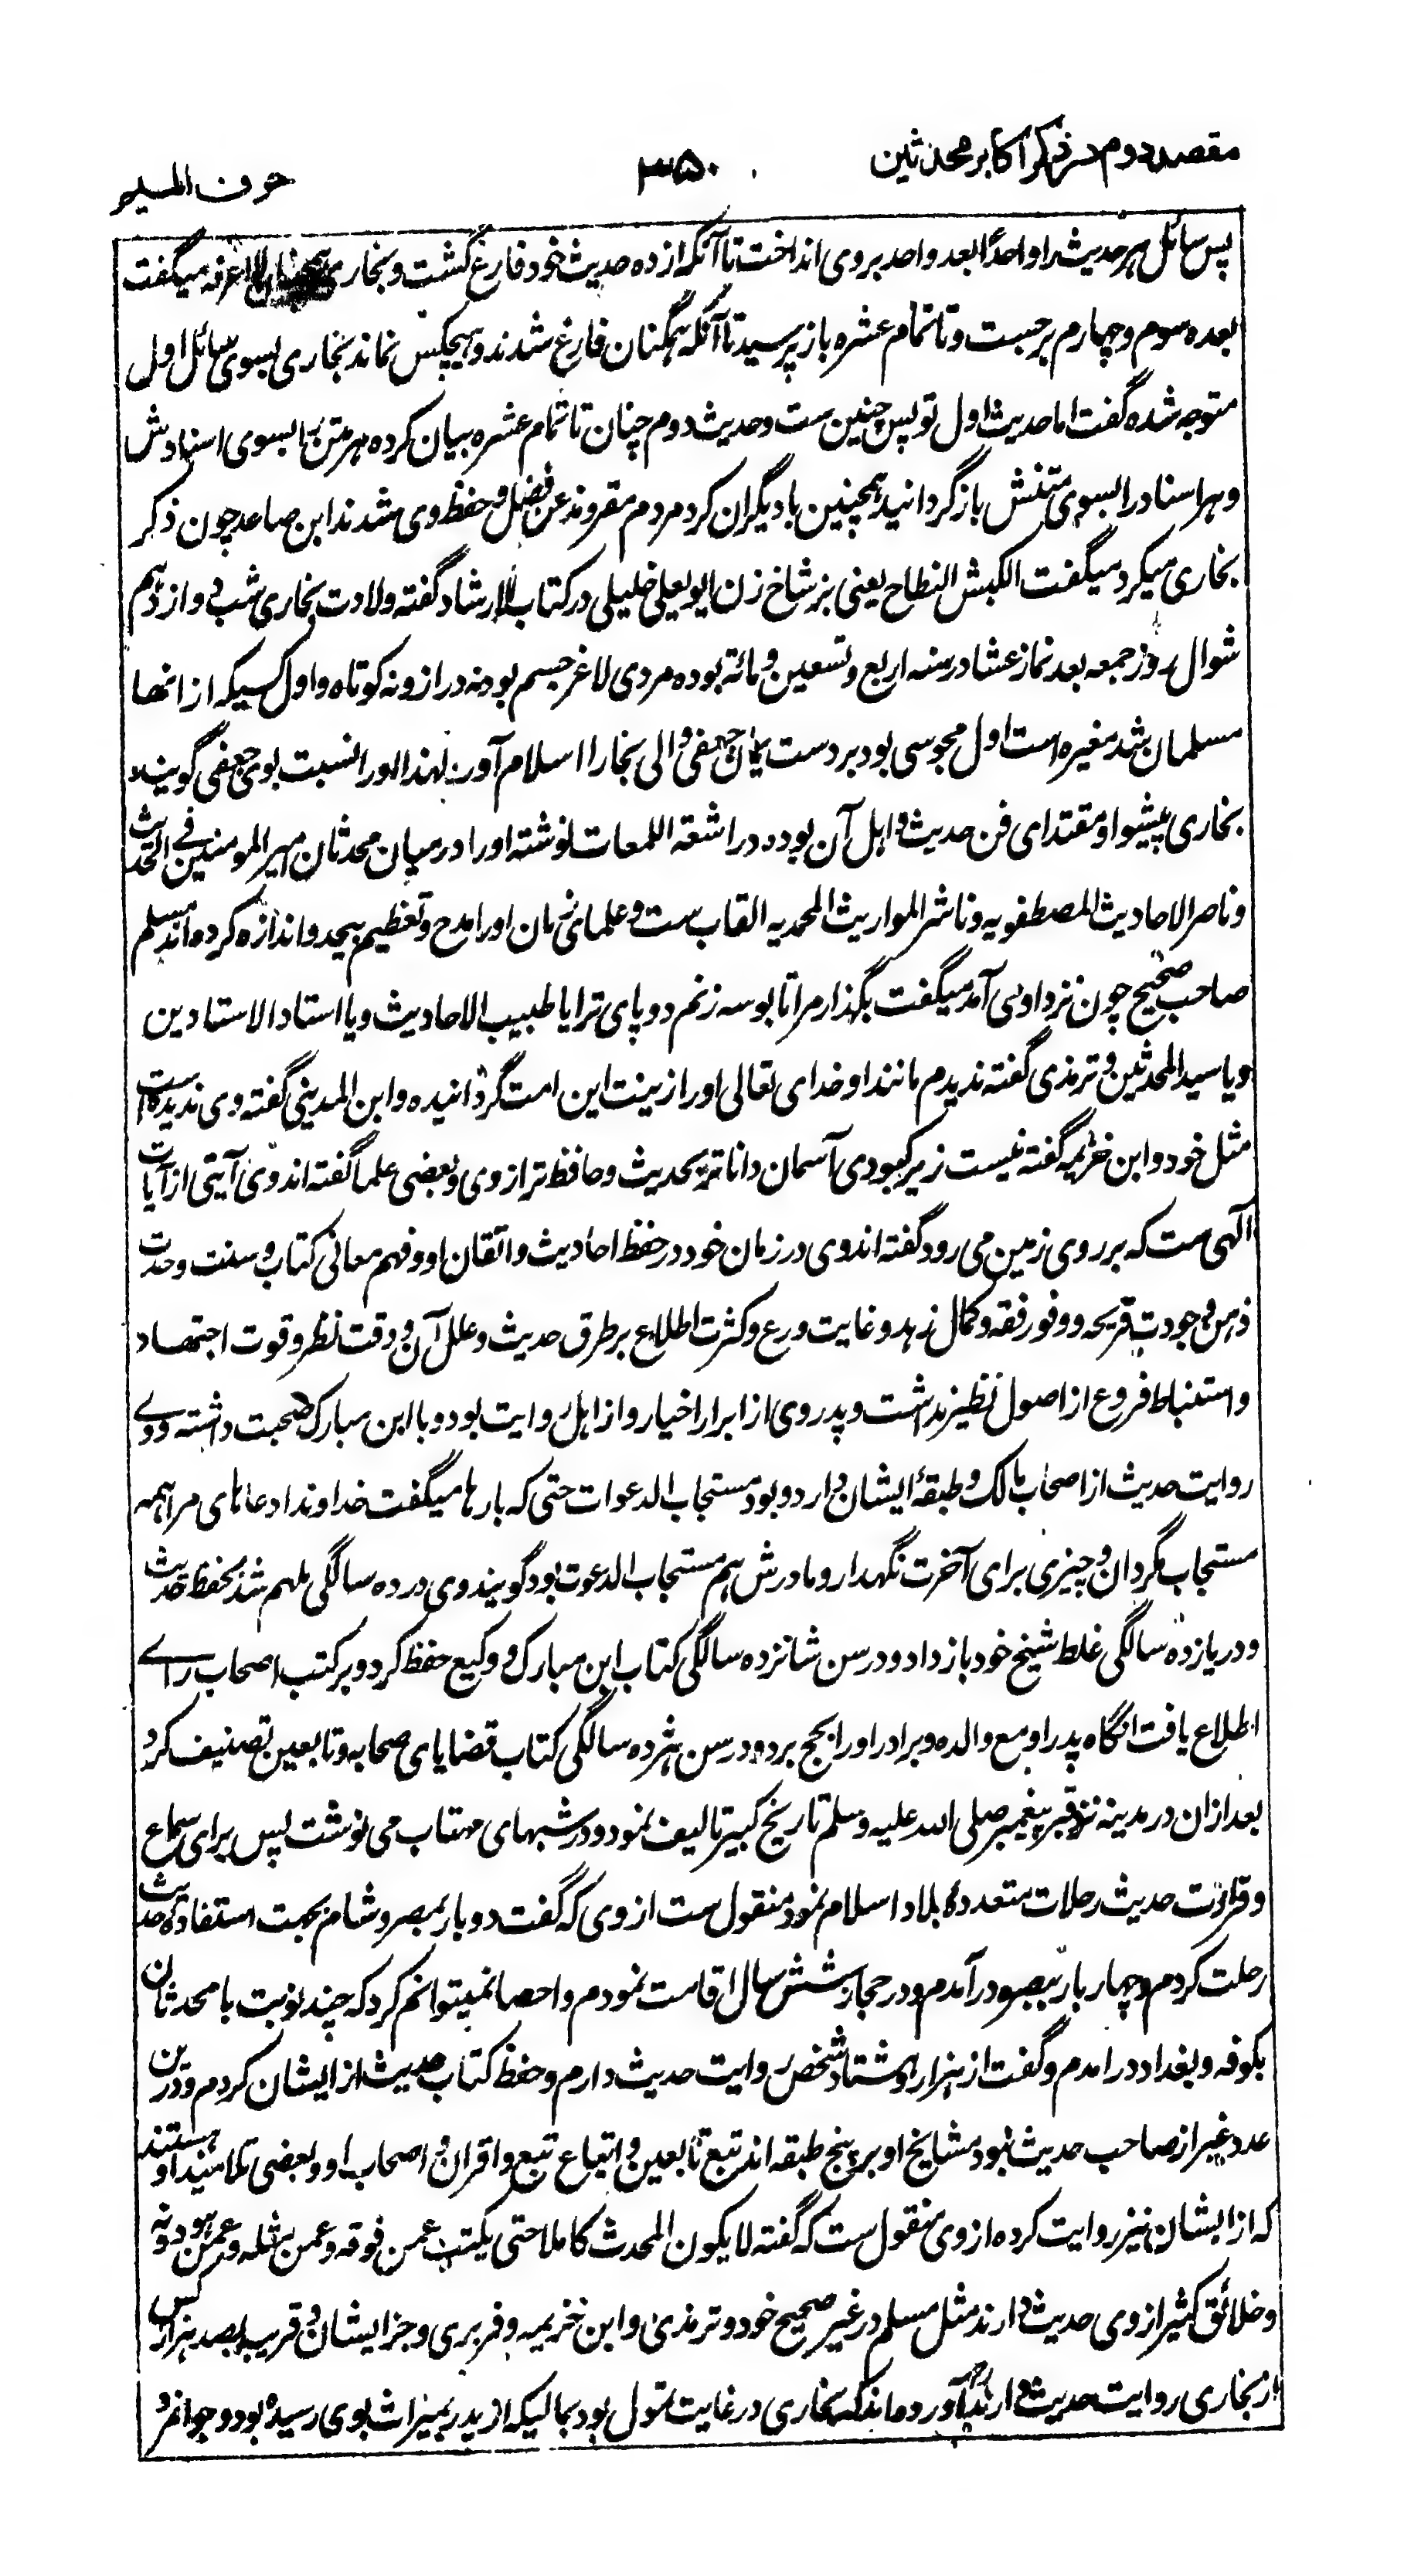 مقصد دوم در ذکر اکابر محدثین
۳۵۰
حرف المیم
پس سائل هر حدیث را واحدًا بعد واحد بروی انداخت تا آنکه از ده حدیث خود فارغ گشت و بخاری همچنان لا اعرفه میگفت
بعده سوم و چهارم برجست و تا تمام عشره باز پرسید تا آنکه همگنان فارغ شدند و هیچکس نماند بخاری بسوی سائل اول
متوجه شده گفت اما حدیث اول تو پس چنین ست و حدیث دوم چنان تا تمام عشره بیان کرده هر متن را بسوی اسنادش
و هر اسناد را بسوی متنش باز گردانید همچنین با دیگران کرد مردم مقر و مذعن فضل و حفظ وی شدند ابن صاعد چون ذکر
بخاری میکرد میگفت الکبش النطاح یعنی بز شاخ زن ابو یعلی خلیلی در کتاب الارشاد گفته ولادت بخاری شب دوازدهم
شوال روز جمعه بعد نماز عشا در سنه اربع و تسعین و مائة بوده مردی لاغر جسم بود نه دراز و نه کوتاه و اول کسیکه از انها
مسلمان شد مغیره است اول مجوسی بود بر دست یمان جعفی والی بخارا اسلام آورد لهذا او را نسبت بوی جعفی گویند
بخاری پیشوا و مقتدای فن حدیث و اهل آن بوده در اشعة اللمعات نوشته او را در میان محدثان امیر المومنین فی الحدیث
و ناصر الاحادیث المصطفویه و ناشر المواریث المحمدیه القاب ست و علمای زمان او را مدح و تعظیم بیحد و اندازه کرده اند مسلم
صاحب صحیح چون نزد اوی آمد میگفت بگذار مرا تا بوسه زنم دو پای ترا یا طبیب الاحادیث و یا استاد الاستادین
و یا سید المحدثین و ترمذی گفته ندیدم مانند او خدای تعالی او را زینت این امت گردانیده و ابن المدینی گفته وی ندیده است
مثل خود و ابن خزیمه گفته نیست زیر کبودی آسمان دانا تر بحدیث و حافظ تر از وی و بعضی علما گفته اند وی آیتی از آیات
آلهی ست که بر روی زمین می رود گفته اند وی در زمان خود در حفظ احادیث و اتقان او و فهم معانی کتاب و سنت و حدت
ذهن و جودت قریحه و وفور فقه و کمال زهد و غایت ورع و کثرت اطلاع بر طرق حدیث و علل آن و دقت نظر و قوت اجتهاد
و استنباط فروع از اصول نظیر نداشت و پدر وی از ابرار اخیار و از اهل روایت بود و با ابن مبارک صحبت داشته و وے
روایت حدیث از اصحاب مالک و طبقهٔ ایشان دارد و بود مستجاب الدعوات حتی که بارها میگفت خداوندا دعاهای مرا همه
مستجاب مگردان و چیزی برای آخرت نگهدار و مادرش هم مستجاب الدعوت بود گویند وی در ده سالگی ملهم شد بحفظ حدیث
و در یازده سالگی غلط شیخ خود باز داد و در سن شانزده سالگی کتاب ابن مبارک و وکیع حفظ کرد و بر کتب اصحاب راے
اطلاع یافت انگاه پدر او مع والده و برادر او را بحج برد و در سن هژده سالگی کتاب قضایای صحابه و تابعین تصنیف کرد
بعد ازان در مدینه نزد قبر پیغمبر صلی الله علیه وسلم تاریخ کبیر تالیف نمود و در شبهای مهتاب می نوشت پس برای سماع
و قراءت حدیث رحلات متعدده ببلاد اسلام نمود منقول ست از وی که گفت دو بار بمصر و شام بجهت استفاده حدیث
رحلت کردم و چهار بار ببصره در آمدم و در حجاز شش سال اقامت نمودم و احصا نمیتوانم کرد که چند نوبت با محدثان
بکوفه و بغداد در امدم و گفت از هزار و هشتاد شخص روایت حدیث دارم و حفظ کتاب حدیث از ایشان کردم و در ین
عدد غیر از صاحب حدیث نبود مشایخ او بر پنج طبقه اند تبع تابعین و اتباع تبع و اقران و اصحاب او و بعضی تلامیذ او هستند
که از ایشان نیز روایت کرده از وی منقول ست که گفته لا یکون المحدث کاملا حتی یکتب عمن فوقه و عمن مثله و عمن هو دونه
و خلائق کثیر از وی حدیث دارند مثل مسلم در غیر صحیح خود و ترمذی و ابن خزیمه و فربری و جز ایشان و قریب بصد هزار کس
از بخاری روایت حدیث دارند آورده اند که بخاری در غایت تمول بود بمالیکه از پدر بمیراث بوی رسیده بود و جوانمرد